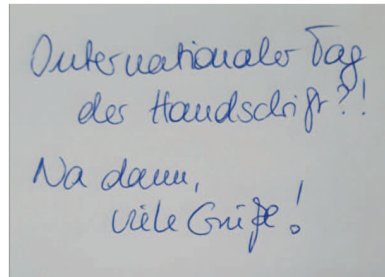 Internationaler Tag
der Handschrift?!
Na dann,
viele Grüße!